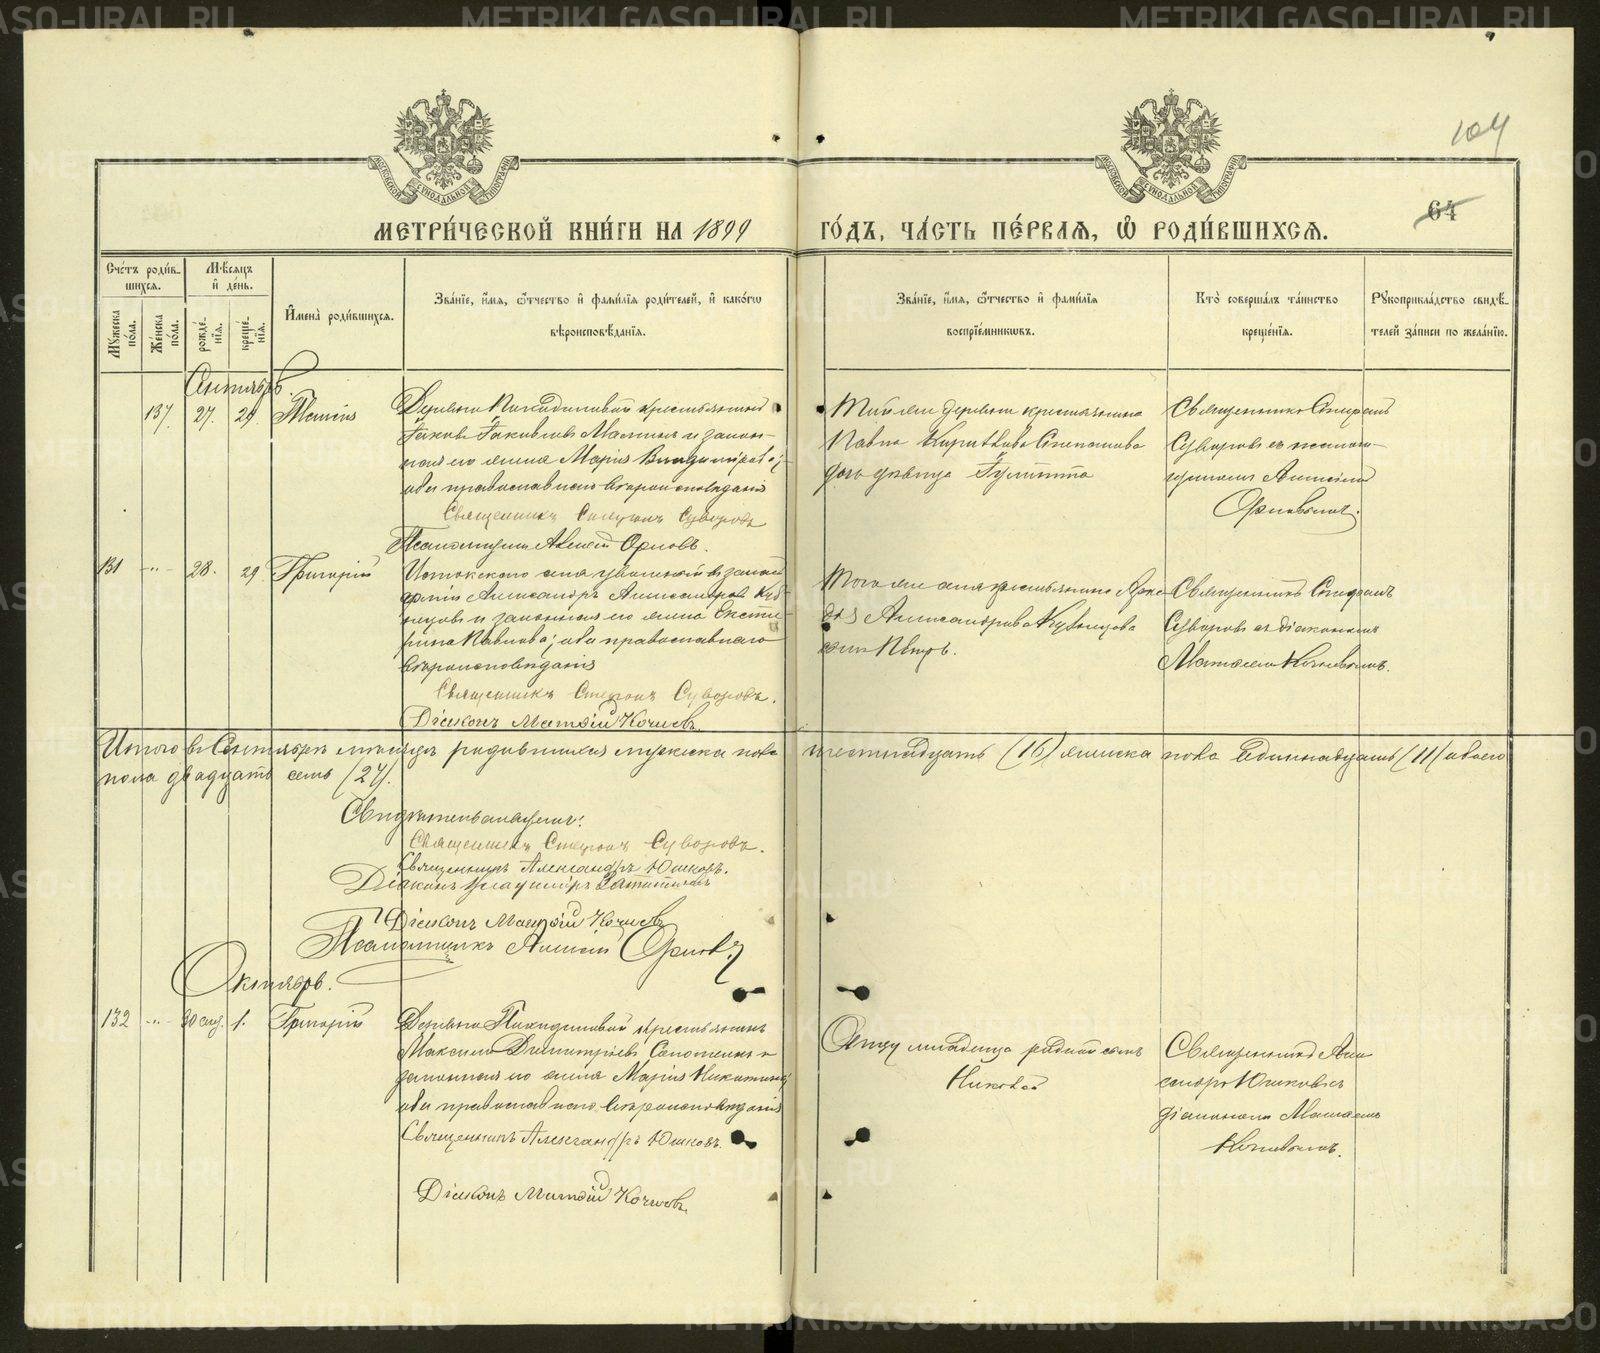 METRIKI.GASO-URAL.RU
104
64
МОСКОВСКОЙ СУНОДАЛЬНОЙ ТИПОГРАФІИ
МЕТРИ́ЧЕСКОЙ КНИ́ГИ НА 1899 ГО́ДЪ, ЧА́СТЬ ПЕ́РВАЯ, Ѡ РОДИ́ВШИХСЯ.
Сче́тъ роди́вшихся.
Мѣсяцъ и де́нь.
Мꙋжеска по́ла.
Же́нска по́ла.
рожде́нїя.
креще́нїя.
Имена̀ роди́вшихся.
Зва́нїе, и́мя, ѻ҆́тчество и фами́лїя роди́телей, и како́гѡ
вѣроисповѣ́данїя.
Зва́нїе, и́мя, ѻ҆́тчество и фами́лїя
воспрїе́мникѡвъ.
Кто̀ соверша́лъ та́инство
креще́нїя.
Рꙋкоприкла́дство свидѣ́телей за́писи по жела́нїю.
Сентябрь.
137. 27. 29.
Деревни крестьянинъ
Іаковъ Іаковлевъ и закон-
ная его жена Марія
оба православнаго вѣроисповѣданія
Священникъ Стефанъ Суворовъ
Псаломщикъ Алексій Орловъ.
Той же деревни крестьянина
Павла Степанова
дочь дѣвица Іулитта
Священникъ Стефанъ
Суворовъ съ псалом-
щикомъ Алексіемъ
Орловымъ.
131 -"- 28. 29 Григорій
Истокскаго села уволенный въ запас
арміи Александръ Александровъ Куз-
нецовъ и законная его жена Екате-
рина Павлова; оба православнаго
вѣроисповѣданія
Священникъ Стефанъ Суворовъ.
Діаконъ Матѳій Кочневъ.
Того же села крестьянина
Александрова Кузнецова
сынъ Петръ.
Священникъ Стефанъ
Суворовъ съ діакономъ
Матѳіемъ Кочневымъ.
Итого въ Сентябрѣ мѣсяцѣ родившихся мужеска пола шестнадцать (16) женска пола одиннадцать (11) обоего
пола двадцать семь (27).
Свидѣтельствуемъ:
Священникъ Стефанъ Суворовъ.
Священникъ Александръ Юшковъ.
Діаконъ Владиміръ
Діаконъ Матѳій Кочневъ
Псаломщикъ Алексій Орловъ
Октябрь.
132 -"- 30 сен. 1. Григорій
Деревни крестьянинъ
Максимъ Димитріевъ и
законная его жена Марія Никитина;
оба православнаго вѣроисповѣданія
Священникъ Александръ Юшковъ.
Діаконъ Матѳій Кочневъ.
младенца родной сынъ
Николай
Священникъ Алек-
сандръ Юшковъ съ
діакономъ Матѳіемъ
Кочневымъ.